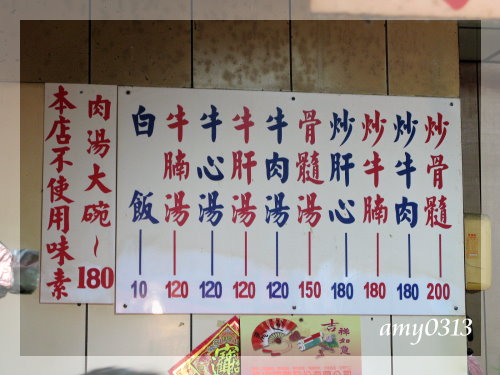 炒骨髓 200
炒牛肉 180
炒牛腩 180
炒肝心 180
骨髓湯 150
牛肉湯 120
牛肝湯 120
牛心湯 120
牛腩湯 120
白飯 10
肉湯大碗~180
本店不使用味素
吉祥如意
amy0313